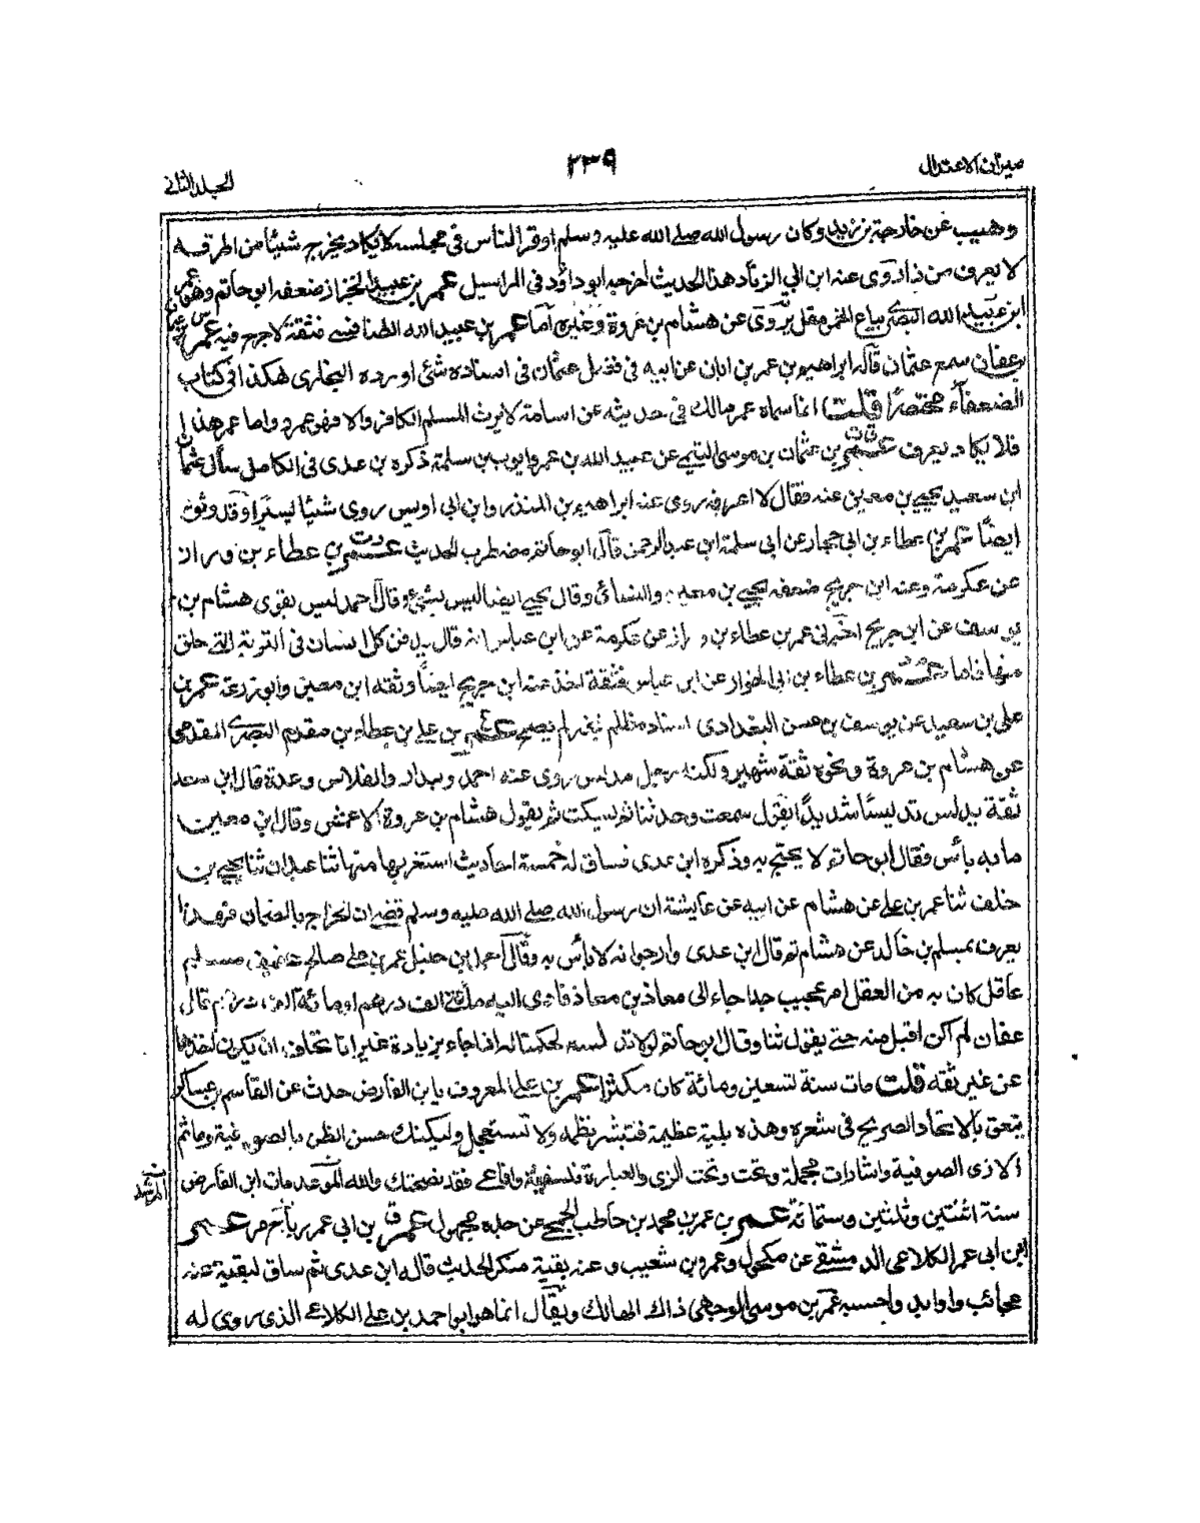 ميزان الاعتدال
٢٣٩
الجلد الثانى
وهيب عن خارجة بن زيد وكان رسول الله صلى الله عليه وسلم اوقر الناس فى مجلسه لا يكاد يخرج شيئا من اطرافه
لا يعرف من ذا روى عنه ابن ابي الزناد هذا الحديث اخرجه ابو داؤد فى المراسيل عمر بن عبيد الخزاز ضعفه ابو حاتم وهو عمر
ابن عبيد الله البصرى بياع الخمر مقل يروى عن هشام بن عروة وغيره اما عمر بن عبيد الله الطنافسى فثقة لا جرح فيه عمر
بن عفان سمع عثمان قاله ابراهيم بن عمر بن ابان عن ابيه فى فضل عثمان فى اسناده شئ اورده البخارى هكذا فى كتاب
الضعفاء مختصرا قلت انما سماه عمر مالك فى حديثه عن اسامة لا يرث المسلم الكافر والا فهو عمرو واما عمر هذا
فلا يكاد يعرف عمر بن عثمان بن موسى التيمى عن عبيد الله بن عمر وايوب بن سلمة ذكره بن عدى فى الكامل سأل عثمان
ابن سعيد يحيى بن معين عنه فقال لا اعرفه روى عنه ابراهيم بن المنذر وابن ابى اويس روى شيئا يسيرا وقد وثق
ايضا عمر بن عطاء بن ابى حجار عن ابى سلمة ابن عبد الرحمن قال ابو حاتم مضطرب الحديث عمر بن عطاء بن وراز
عن عكرمة وعنه ابن جريج ضعفه يحيى بن معين والنسائى وقال يحيى ايضا ليس بشئ وقال احمد ليس بقوى هشام بن
يوسف عن ابن جريج اخبرنى عمر بن عطاء بن وراز عن عكرمة عن ابن عباس انه قال يدفن كل انسان فى التربة التى خلق
منها فاما عمر بن عطاء بن ابى الخوار عن ابن عباس فثقة اخذ عنه ابن جريج ايضا وثقه ابن معين وابو زرعة عمر بن
على بن سعيد عن يوسف بن حسن البغدادى اسناد مظلم لخبر لم يصح عمر بن على بن عطاء بن مقدم البصرى المقدمى
عن هشام بن عروة ونحوه ثقة شهير ولكنه رجل مدلس روى عنه احمد وبندار والفلاس وعدة قال ابن سعد
ثقة يدلس تدليسا شديدا يقول سمعت وحدثنا ثم يسكت ثم يقول هشام بن عروة الاعمش وقال ابن معين
ما به بأس فقال ابو حاتم لا يحتج به وذكره ابن عدى فساق له خمسة احاديث استغربها منها ثنا عبدان ثنا يحيى بن
خلف ثنا عمر بن على عن هشام عن ابيه عن عايشة ان رسول الله صلى الله عليه وسلم قضى ان الخراج بالضمان فهذا
يعرف بمسلم بن خالد عن هشام ثم قال ابن عدى وارجو انه لا بأس به وقال احمد بن حنبل عمر بن على صالح عفيف مسلم
عاقل كان به من العقل امر عجيب جدا جاء الى معاذ بن معاذ فادى اليه مائتى الف درهم او مائة الف ثم قال
عفان لم اكن اقبل منه حتى يقول ثنا وقال ابو حاتم لولا تدليسه لحكمنا له اذا جاء بزيادة غير انا نخاف ان يكون اخذها
عن غير ثقه قلت مات سنة تسعين ومائة كان مكثرا عمر بن على المعروف بابن الفارض حدث عن القاسم بن عساكر
ينعق بالاتحاد الصريح فى شعره وهذه بلية عظيمة فتدبر نظمه ولا تستعجل ولكنك حسن الظن بالصوفية وما ثم
الا زى الصوفية واشارات مجملة وتحت وتحت الزى والعبارة فلسفة وافاعى فقد نصحتك والله الموعد مات ابن الفارض
سنة اثنتين وثلثين وستمائة عمر بن عمر بن محمد بن حاطب الجمحى عن جده مجهول عمر بن ابى عمر
ابن ابى عمر الكلاعى الدمشقى عن مكحول وعمرو بن شعيب وعنه بقية منكر الحديث قاله ابن عدى ثم ساق لبقية عنه
عجائب واوابد واحسبه عمر بن موسى الوجيهى ذاك الهالك ويقال انما هو ابو احمد بن على الكلاعى الذى روى له